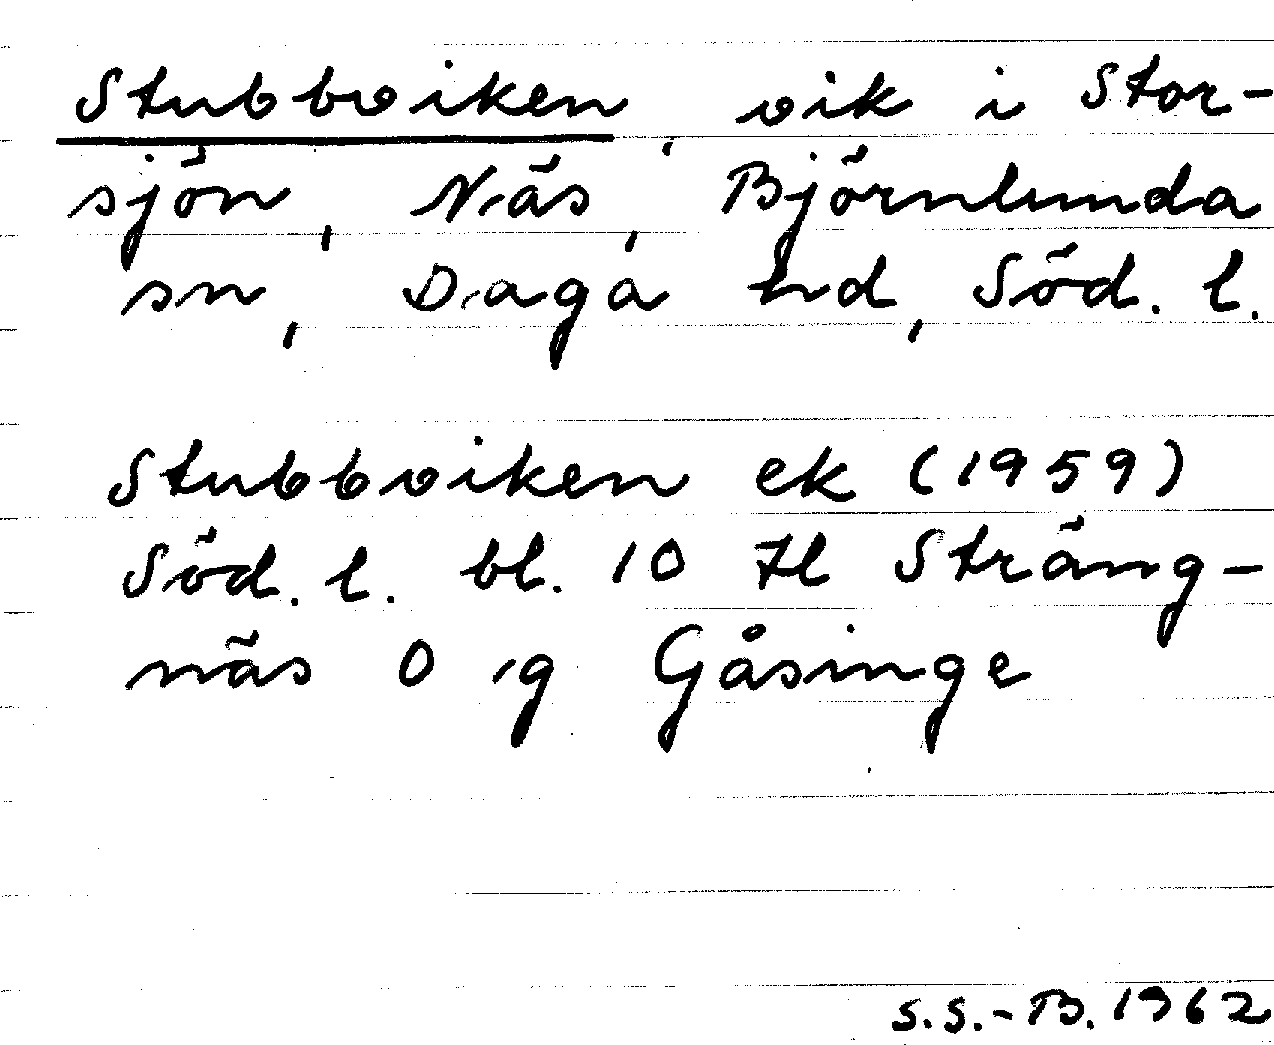 Stubbviken, vik i Stor-
sjön, Näs, Björnlunda
sn, Daga hd, Söd. l.
Stubbviken ek (1959)
Söd. l. bl. 10 Il Sträng-
näs 0 g Gåsinge
S.S.-B. 1962